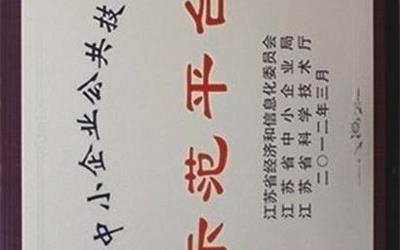 中小企业公共技
示范平台
江苏省经济和信息化委员会
江苏省中小企业局
江苏省科学技术厅
二〇一二年三月